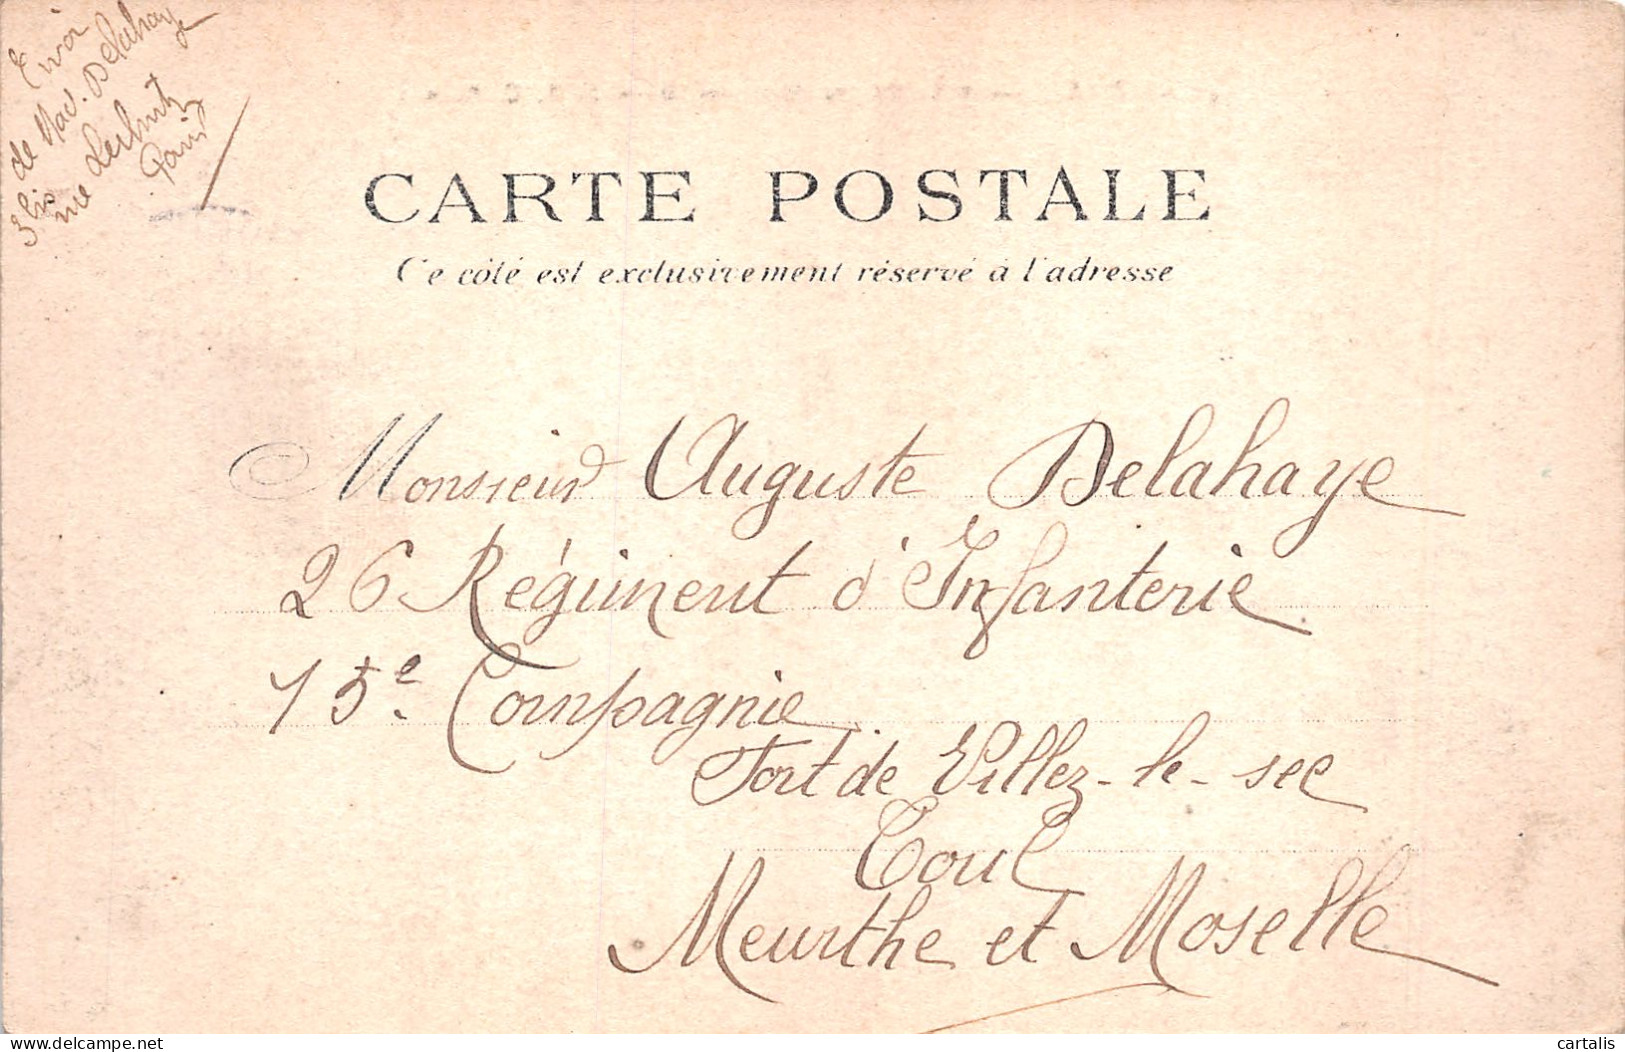 Envoi
de Mad. Delahaye
3 bis
rue Lechut
Paris
CARTE POSTALE
Ce côté est exclusivement réservé à l'adresse
Monsieur Auguste Delahaye
26 Régiment d'Infanterie
15e Compagnie
Fort de Villez-le-sec
Toul
Meurthe et Moselle
delcampe.net
cartalis